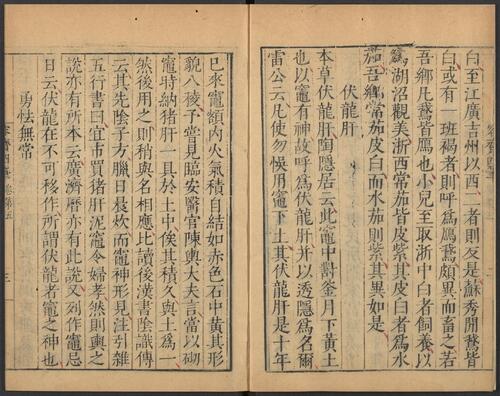 白至江廣吉州以西二者則反是蘇秀間鵞皆
白或有一班褐者則呼爲鴈鵞頗異而畜之若
吾鄉凡鵞皆鴈也小兒至取浙中白者飼養以
爲湖沼觀美浙西常茄皆皮紫其皮白者爲水
茄吾鄉常茄皮白而水茄則紫其異如是
伏龍肝
本草伏龍肝陶隱居云此竈中對釜月下黃土
也以竈有神故呼爲伏龍肝并以透隱爲名爾
雷公云凡使勿悞用竈下土其伏龍肝是十年
已來竈額內火氣積自結如赤色石中黃其形
貌八稜予嘗見臨安醫官陳輿大夫言當以砌
竈時納猪肝一具於土中俟其積久與土爲一
然後用之則稍與名相應比讀後漢書陰識傳
云其先陰子方臘日晨炊而竈神形見注引雜
五行書曰宜市買猪肝泥竈令婦孝然則輿之
說亦有所本云廣濟曆亦有此說又列作竈忌
日云伏龍在不可移作所謂伏龍者竈之神也
勇怯無常